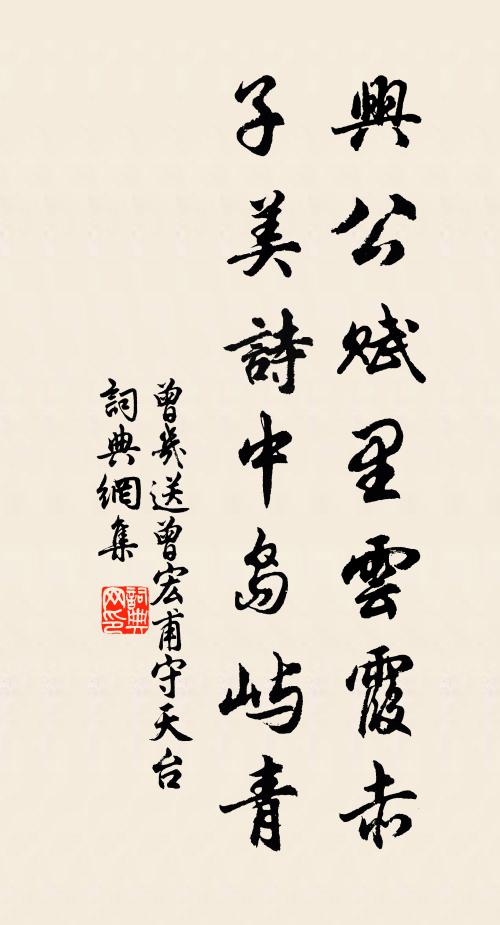 興公賦里雲霞赤
子美詩中島嶼青
曾幾送曾宏甫守天台
詞典網集
詞典
网印